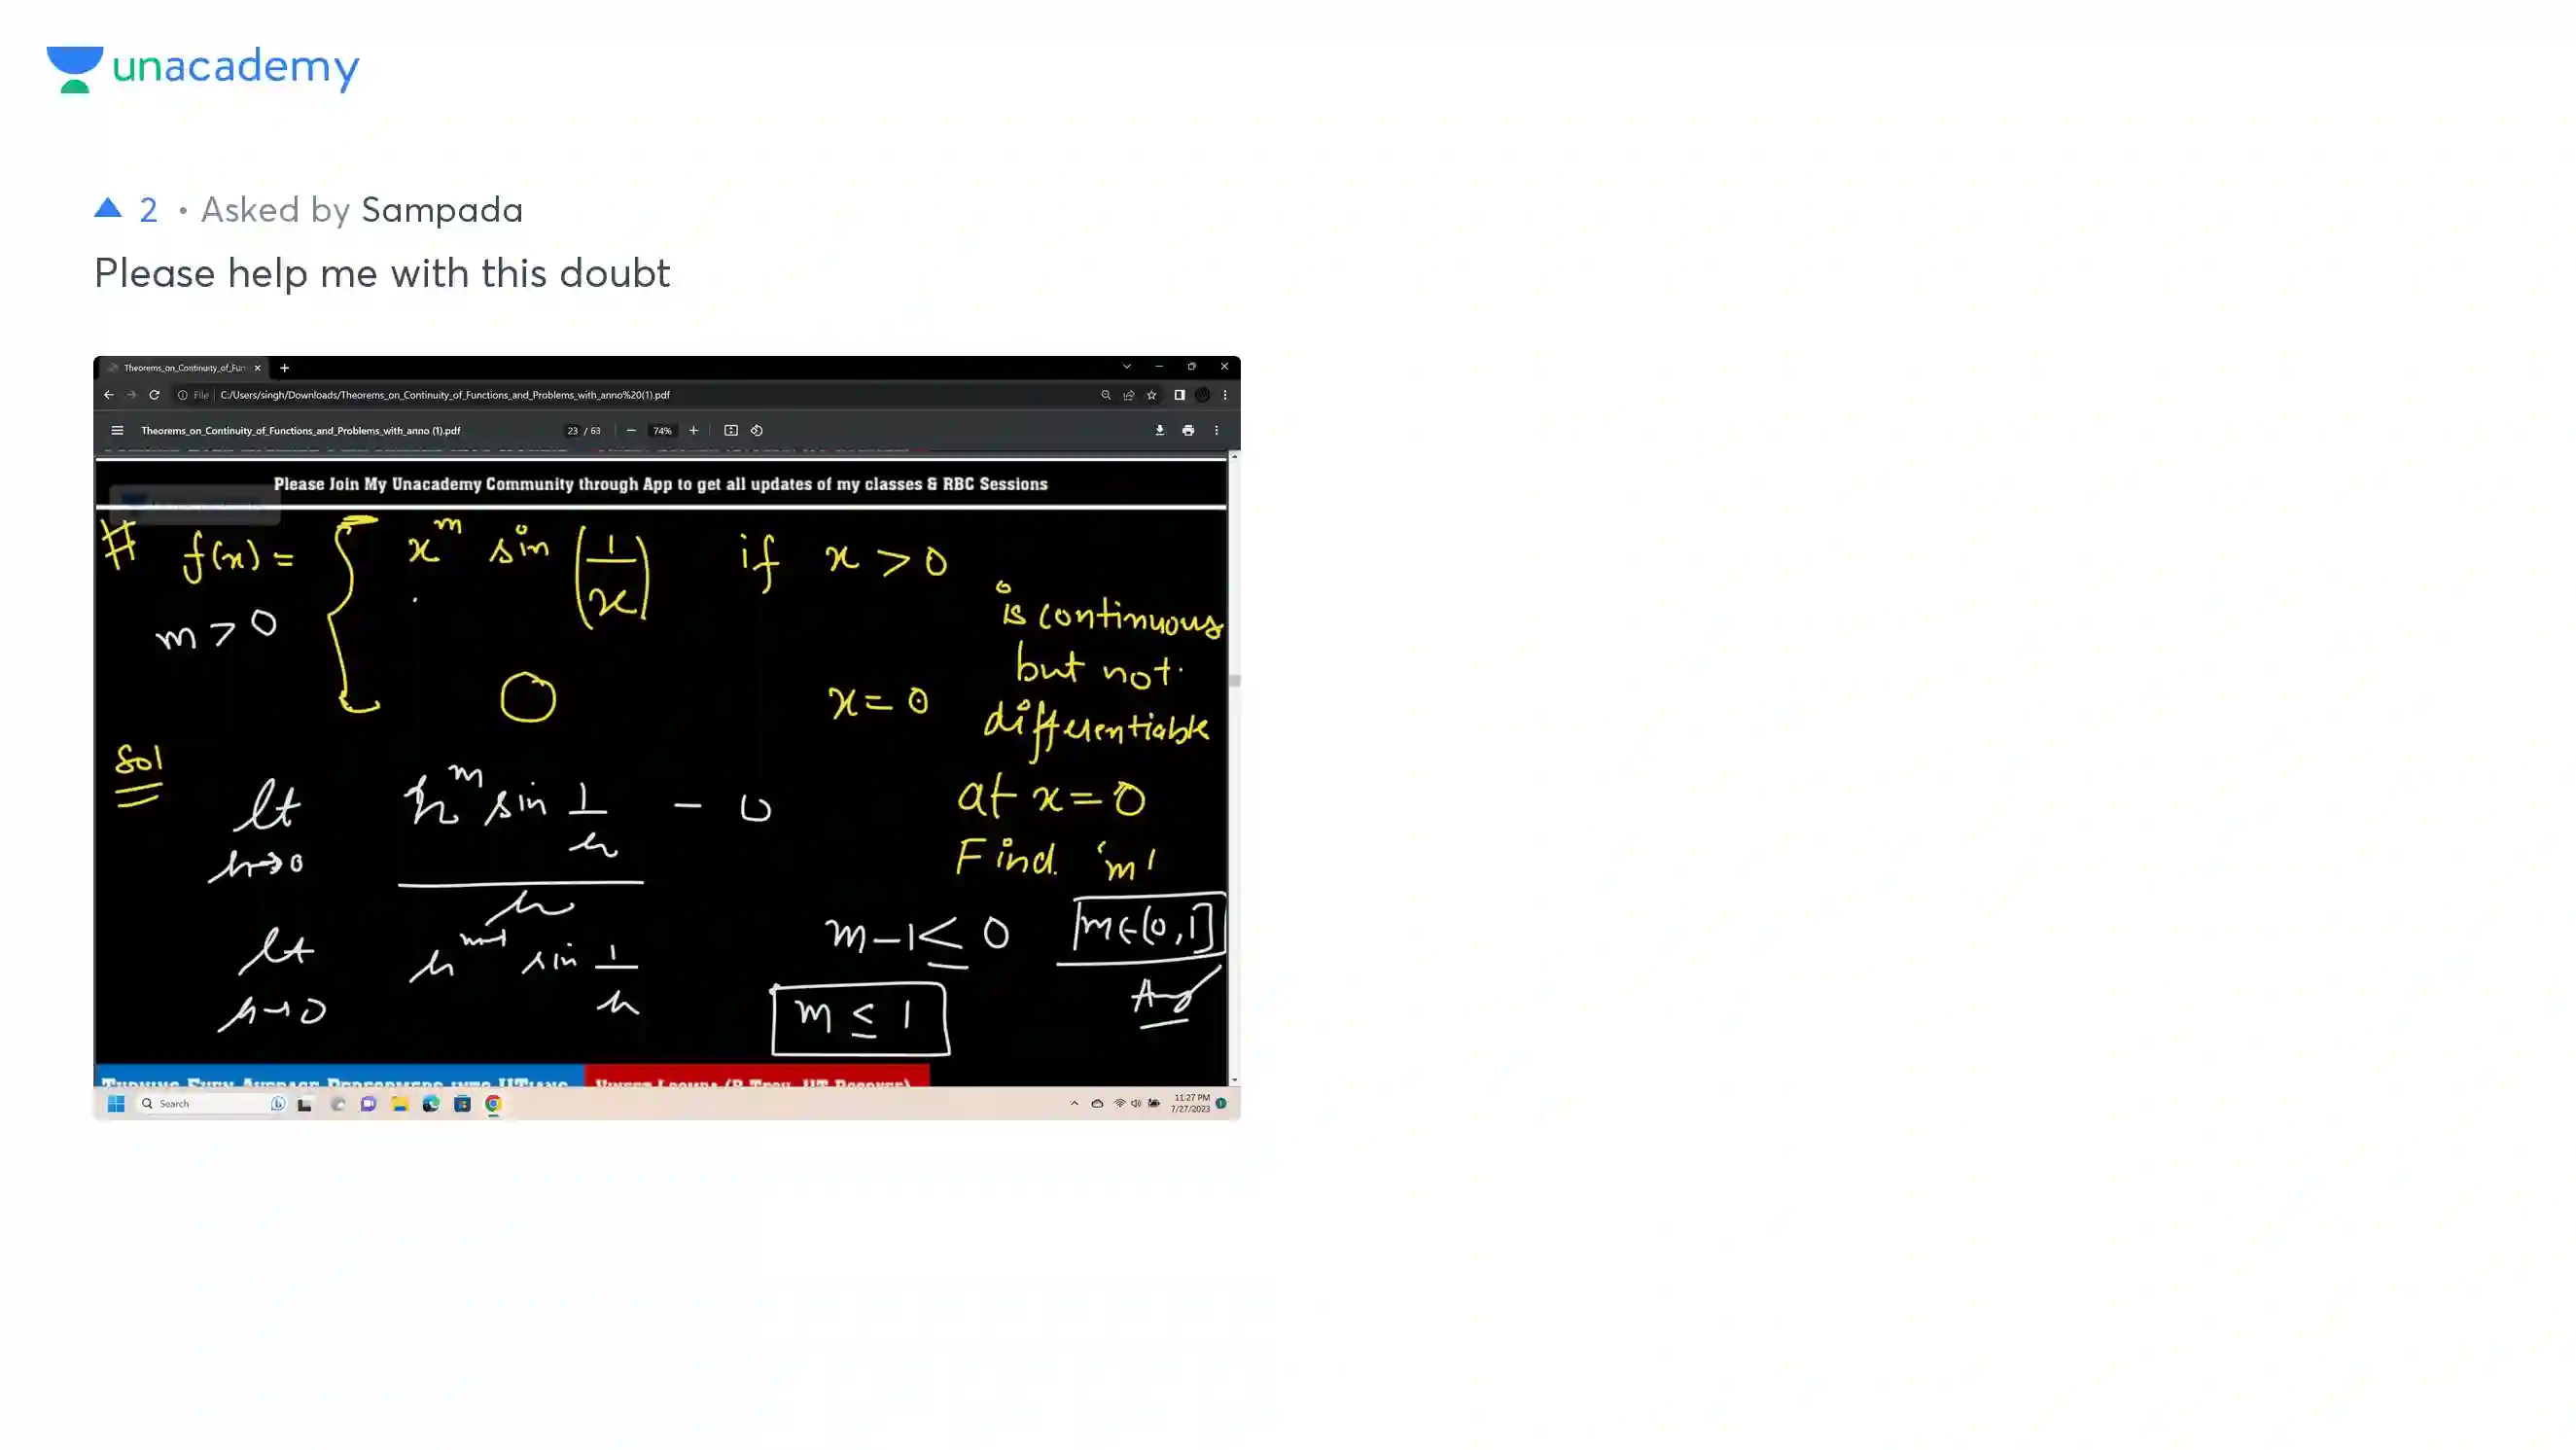 unacademy
2 • Asked by Sampada
Please help me with this doubt
Theorems_on_Continuity_of_Fun
File C:/Users/singh/Downloads/Theorems_on_Continuity_of_Functions_and_Problems_with_anno%20(1).pdf
Theorems_on_Continuity_of_Functions_and_Problems_with_anno (1).pdf 23 / 63 − 74% +
Please Join My Unacademy Community through App to get all updates of my classes & RBC Sessions
# f(x) = { x^m sin (1/x) if x > 0
m > 0
0 x = 0
is continuous
but not.
differentiable
at x = 0
Find 'm'
Sol
lt h→0 (h^m sin 1/h − 0)/h
lt h→0 h^(m-1) sin 1/h
m − 1 ≤ 0
m ≤ 1
m ∈ (0, 1]
Ans
Turning Even Average Performers into IITians
Vineet Loomba (B.Tech. IIT Roorkee)
Search
11:27 PM
7/27/2023